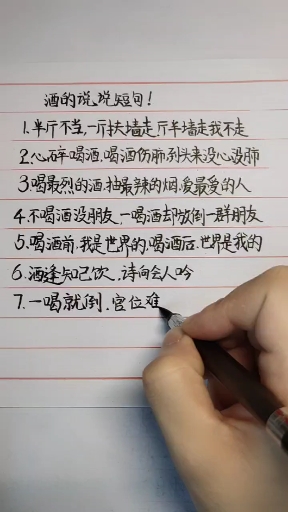 酒的说说短句!
1.半斤不当,一斤扶墙走,斤半墙走我不走
2.心碎喝酒.喝酒伤肺.到头来没心没肺
3.喝最烈的酒.抽最辣的烟.爱最爱的人
4.不喝酒没朋友,一喝酒去放倒一群朋友
5.喝酒前.我是世界的.喝酒后.世界是我的
6.酒逢知己饮.诗向会人吟
7.一喝就倒.官位难